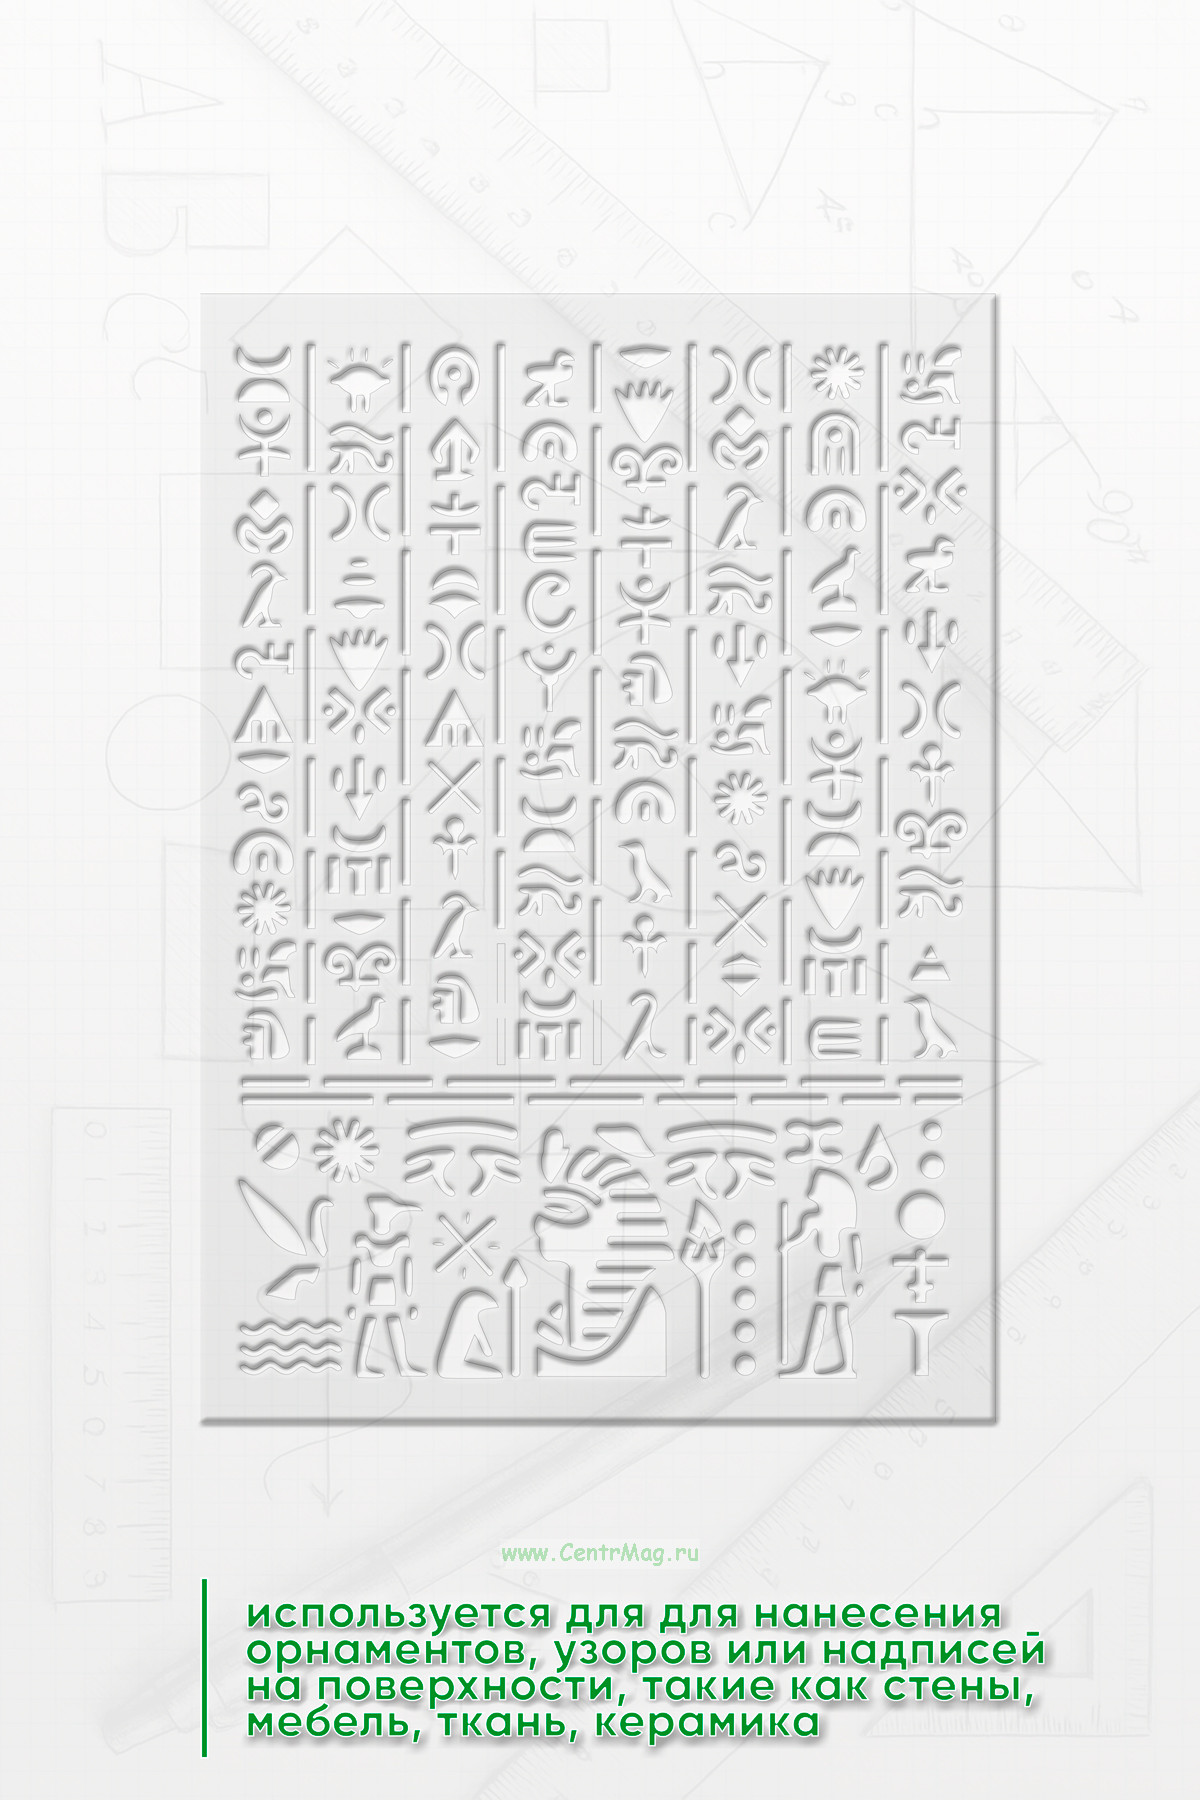 www.CentrMag.ru
используется для для нанесения
орнаментов, узоров или надписей
на поверхности, такие как стены,
мебель, ткань, керамика